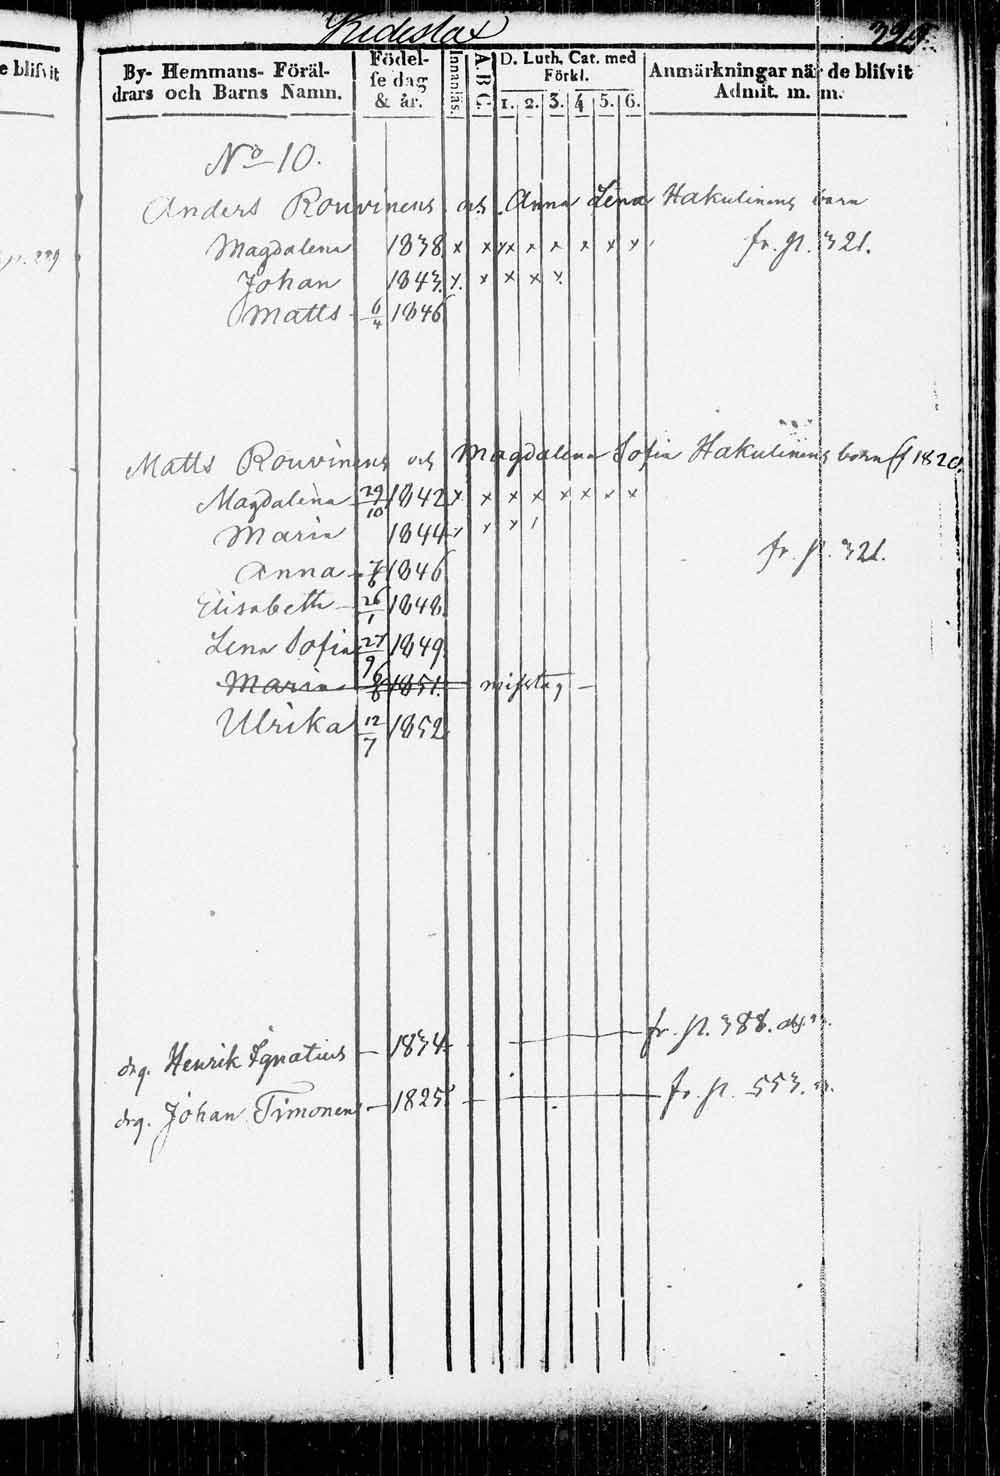 Kideslax
e blifvit
By- Hemmans- Föräl-
drars och Barns Namn.
Födel-
se dag
& år.
Innanläs.
A.B.C.
D. Luth. Cat. med
Förkl.
1. 2. 3. 4 5. 6.
Anmärkningar när de blifvit
Admit. m. m.
No 10.
Anders Rouvinens och Anna Lena Hakulinens barn
Magdalena 1838 x x x x x x x x x fr. p. 321.
Johan 1843. x x x x x
Matts 6/4 1846
Matts Rouvinens och Magdalena Sofia Hakulinens barn f 1820.
Magdalena 29/10 1842 x x x x x x x x
Maria 1844 x x x
fr. p. 321.
Anna 7/6 1846
Elisabeth 26/1 1848
Lena Sofia 27/9 1849
Maria 6/8 1851. misstag
Ulrika 12/7 1852
drg. Henrik Ignatius 1834 fr. p. 388.
drg. Johan Timonen 1825 fr. p. 553.